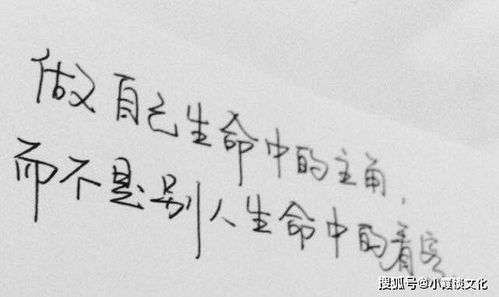 做自己生命中的主角,
而不是别人生命中的看客
搜狐号@小霞谈文化